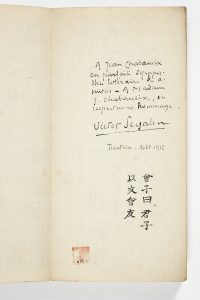 A Jean Chabaneix
en parfaite sympa-
thie littéraire & a-
mitié – A Madame
J. Chabaneix, en
respectueux hommage.
Victor Segalen
Tientsin 1912
曾子曰君子
以文會友